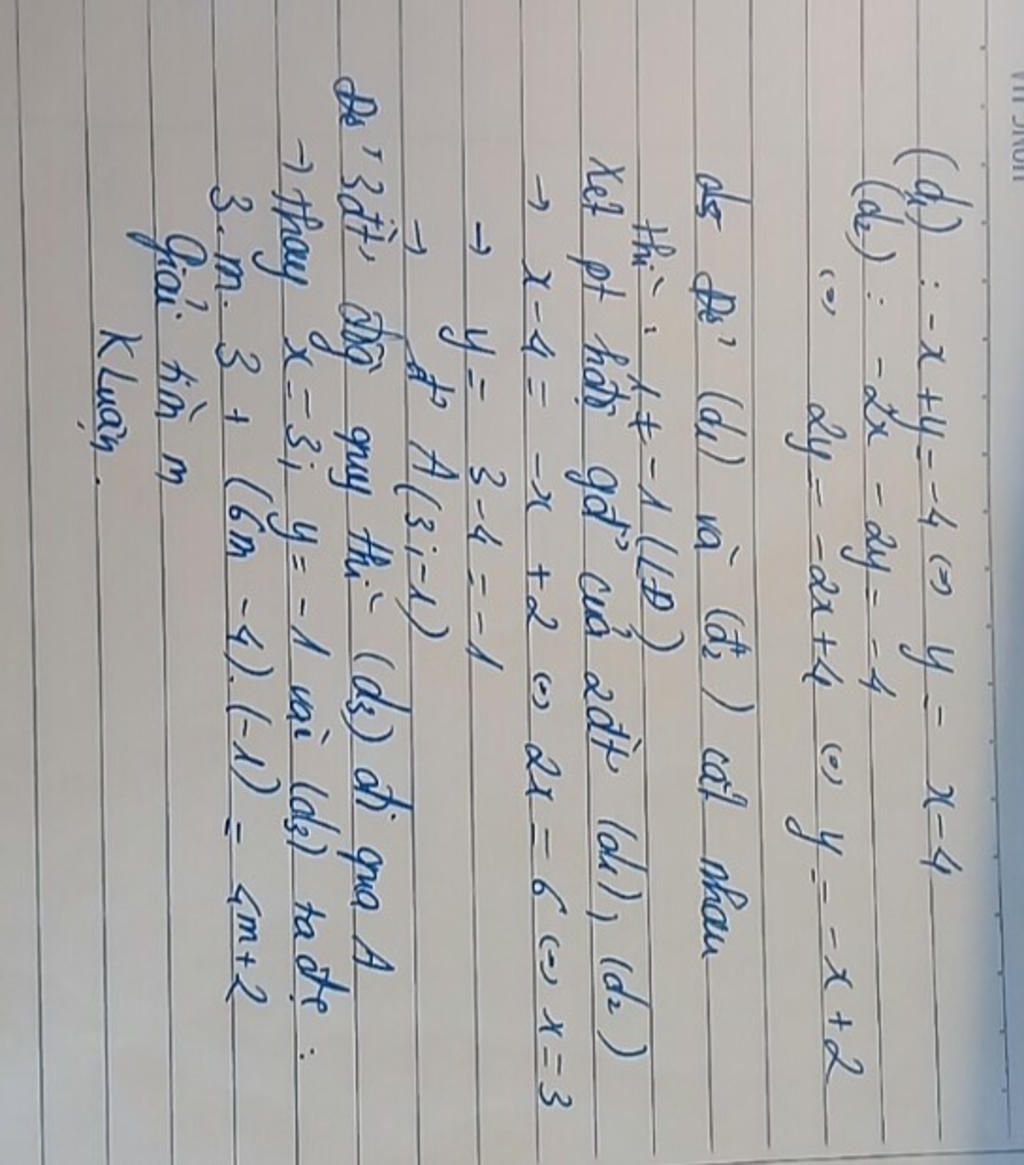 (d₁) : -x + y = -4 (=) y = x - 4
(d₂) : -2x - 2y = -4
(=) 2y = -2x + 4 (=) y = -x + 2
Để (d₁) và (d₂) cắt nhau
thì : 1 ≠ -1 (LĐ)
Xét pt hđộ gđ' của 2đt' (d₁), (d₂)
→ x - 4 = -x + 2 (=) 2x = 6 (=) x = 3
→ y = 3 - 4 = -1
→ đ' A (3 ; -1)
Để 3đt' đg quy thì (d₃) đi qua A
→ Thay x = 3; y = -1 vài (d₃) ta đc :
3. m. 3 + (6m - 4). (-1) = 4m + 2
Giải tìm m
K Luận.